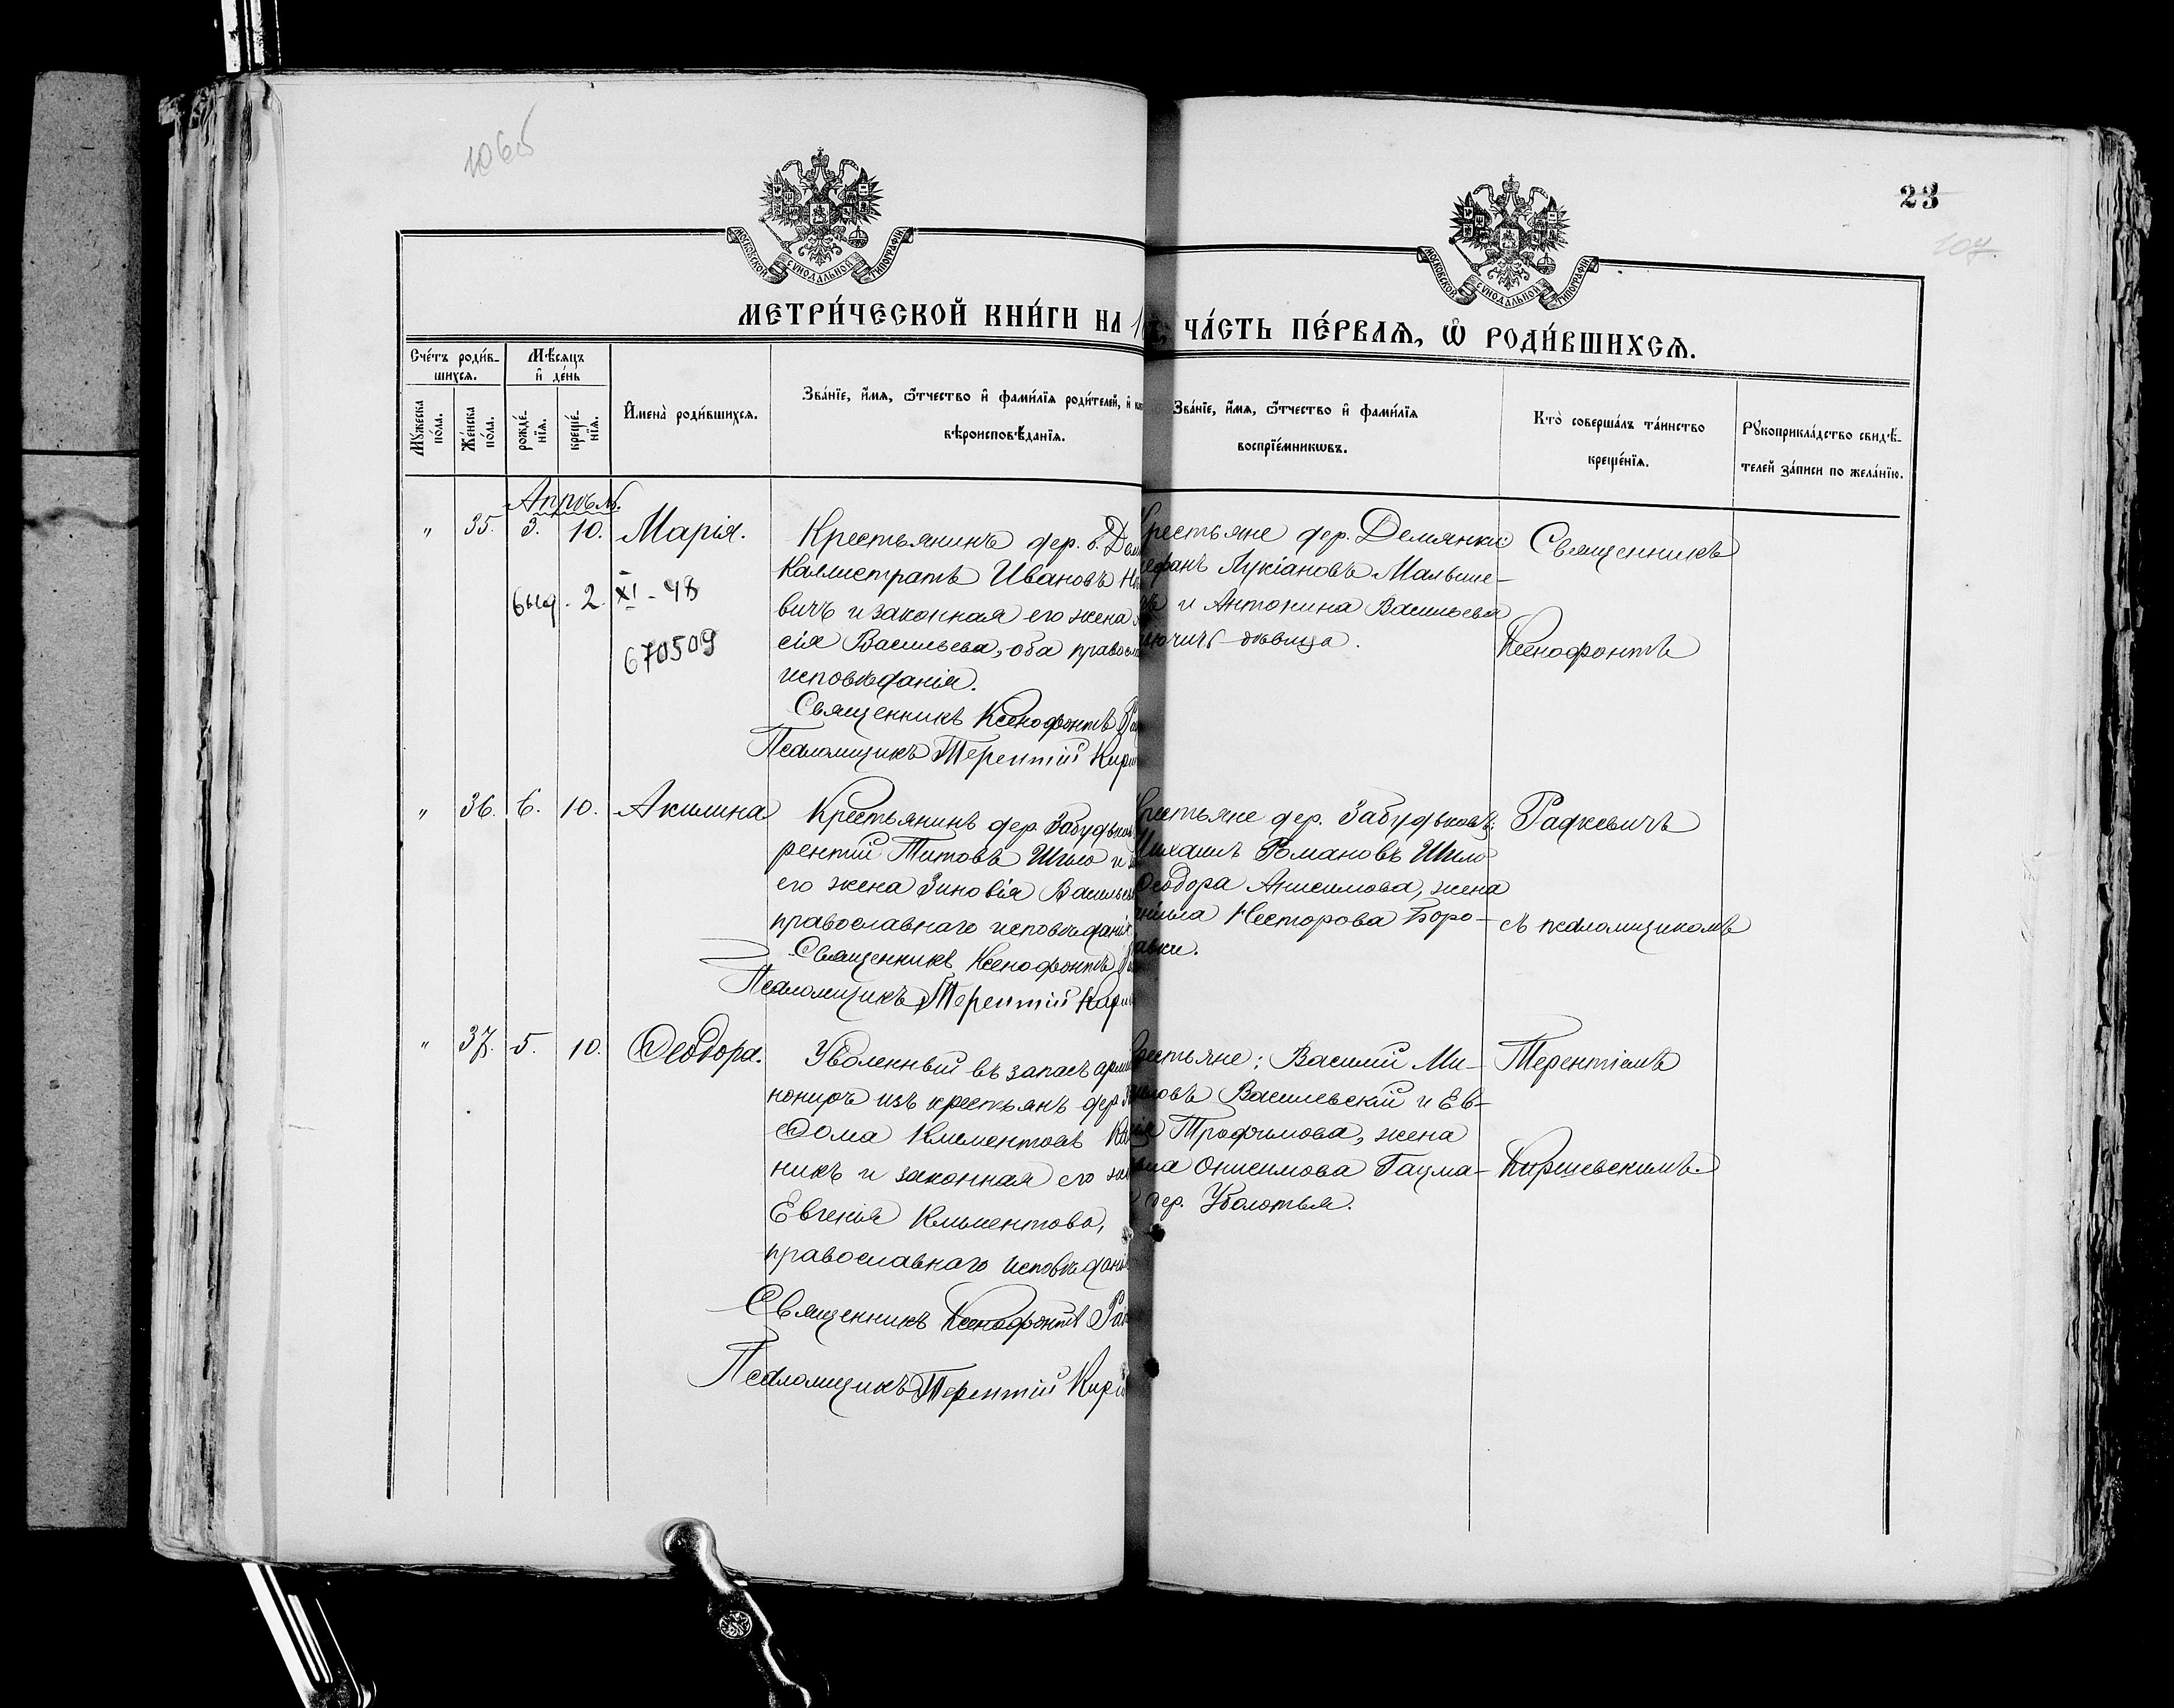 106б
23
107
МОСКОВСКОЙ СУНОДАЛЬНОЙ ТИПОГРАФІИ
МОСКОВСКОЙ СУНОДАЛЬНОЙ ТИПОГРАФІИ
МЕТРИ́ЧЕСКОЙ КНИ́ГИ НА 1
ЧА́СТЬ ПЕ́РВАѦ, Ѿ РОДИ́ВШИХСѦ.
Сче́тъ роди́в-
шихсѧ.
Мѣ́сѧцъ
и҆ де́нь
Мꙋ́жеска
по́ла.
Же́нска
по́ла.
рожде́-
нїѧ.
креще́-
нїѧ.
И҆мена̀ роди́вшихсѧ.
Зва́нїе, и҆́мѧ, ѻ҆́тчество и҆ фами́лїѧ роди́телей, и҆
вѣроисповѣ́данїѧ.
Зва́нїе, и҆́мѧ, ѻ҆́тчество и҆ фами́лїѧ
воспрїе́мникωвъ.
Кто̀ соверша́лъ та́инство
креще́нїѧ.
Рꙋкоприкла́дство свидѣ́-
телей за́писи по жела́нїю.
Апрѣль.
" 35. 3. 10. Марія.
выд. 2 XI - 48
670509
Крестьянинъ дер. Дем
Каллистратъ Ивановъ
вичъ и законная его жена
сія Васильева, оба правосл
исповѣданія.
Священникъ Ксенофонтъ Рад
Псаломщикъ Терентій Кирш
рестьяне дер. Демянки
ефанъ Лукіановъ Малыше-
въ и Антонина Васильева
ючичъ - дѣвица.
Священникъ
Ксенофонтъ
" 36. 6. 10. Акилина
Крестьянинъ дер. Забудьков
рентій Титовъ Шило и
его жена Зиновія Васильев
православнаго исповѣданія
Священникъ Ксенофонтъ
Псаломщикъ Терентій Кирш
рестьяне дер. Забудьковъ:
Михаилъ Романовъ Шило
Ѳеодора Анисимова, жена
Несторова Боро-
авки.
Радкевичъ
съ псаломщикомъ
" 37. 5. 10. Ѳеодора.
Уволенный въ запасъ арміи
нониръ изъ крестьянъ дер.
Ѳома Климентовъ
никъ и законная его же
Евгенія Климентова,
православнаго исповѣданія
Священникъ Ксенофонтъ Рад
Псаломщикъ Терентій Кирш
рестьяне: Василій Ми-
ловъ Василевскій и Ев-
ія Трофимова, жена
Онисимова Гаума-
дер. Уболотья.
Терентіемъ
Киршевскимъ.